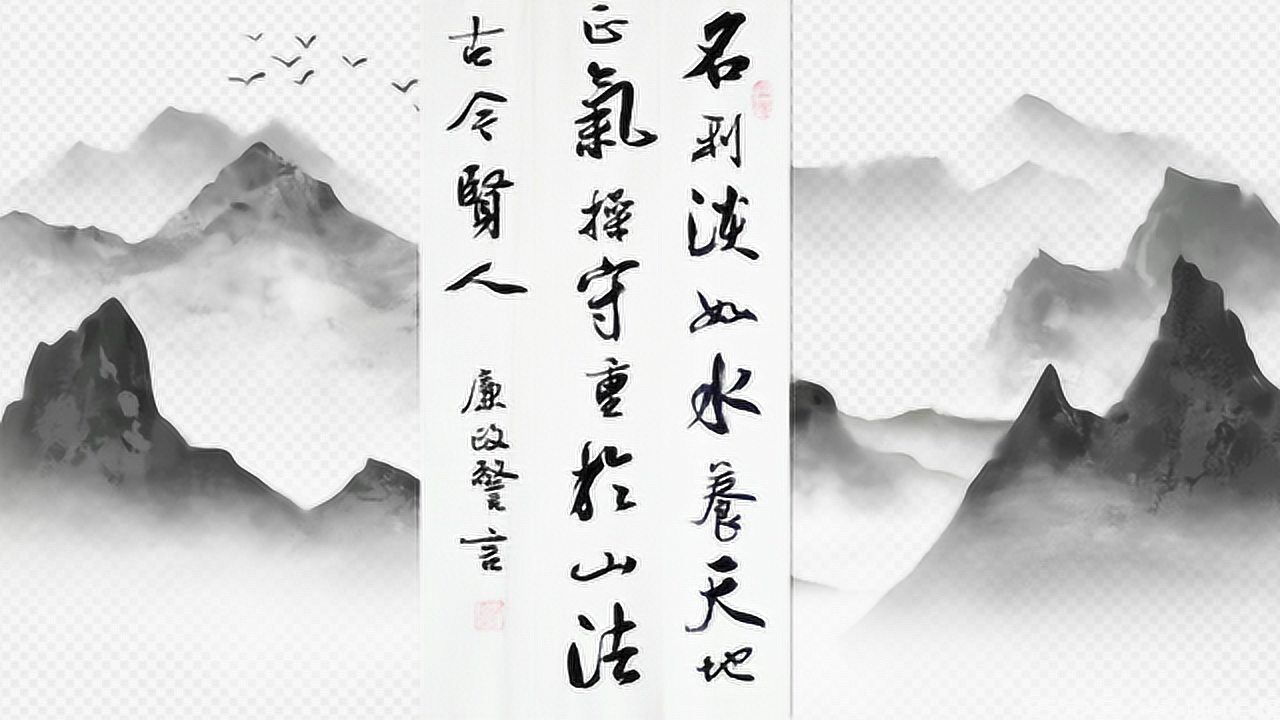 名利淡如水養天地
正氣操守重於山法
古今賢人
廉政警言